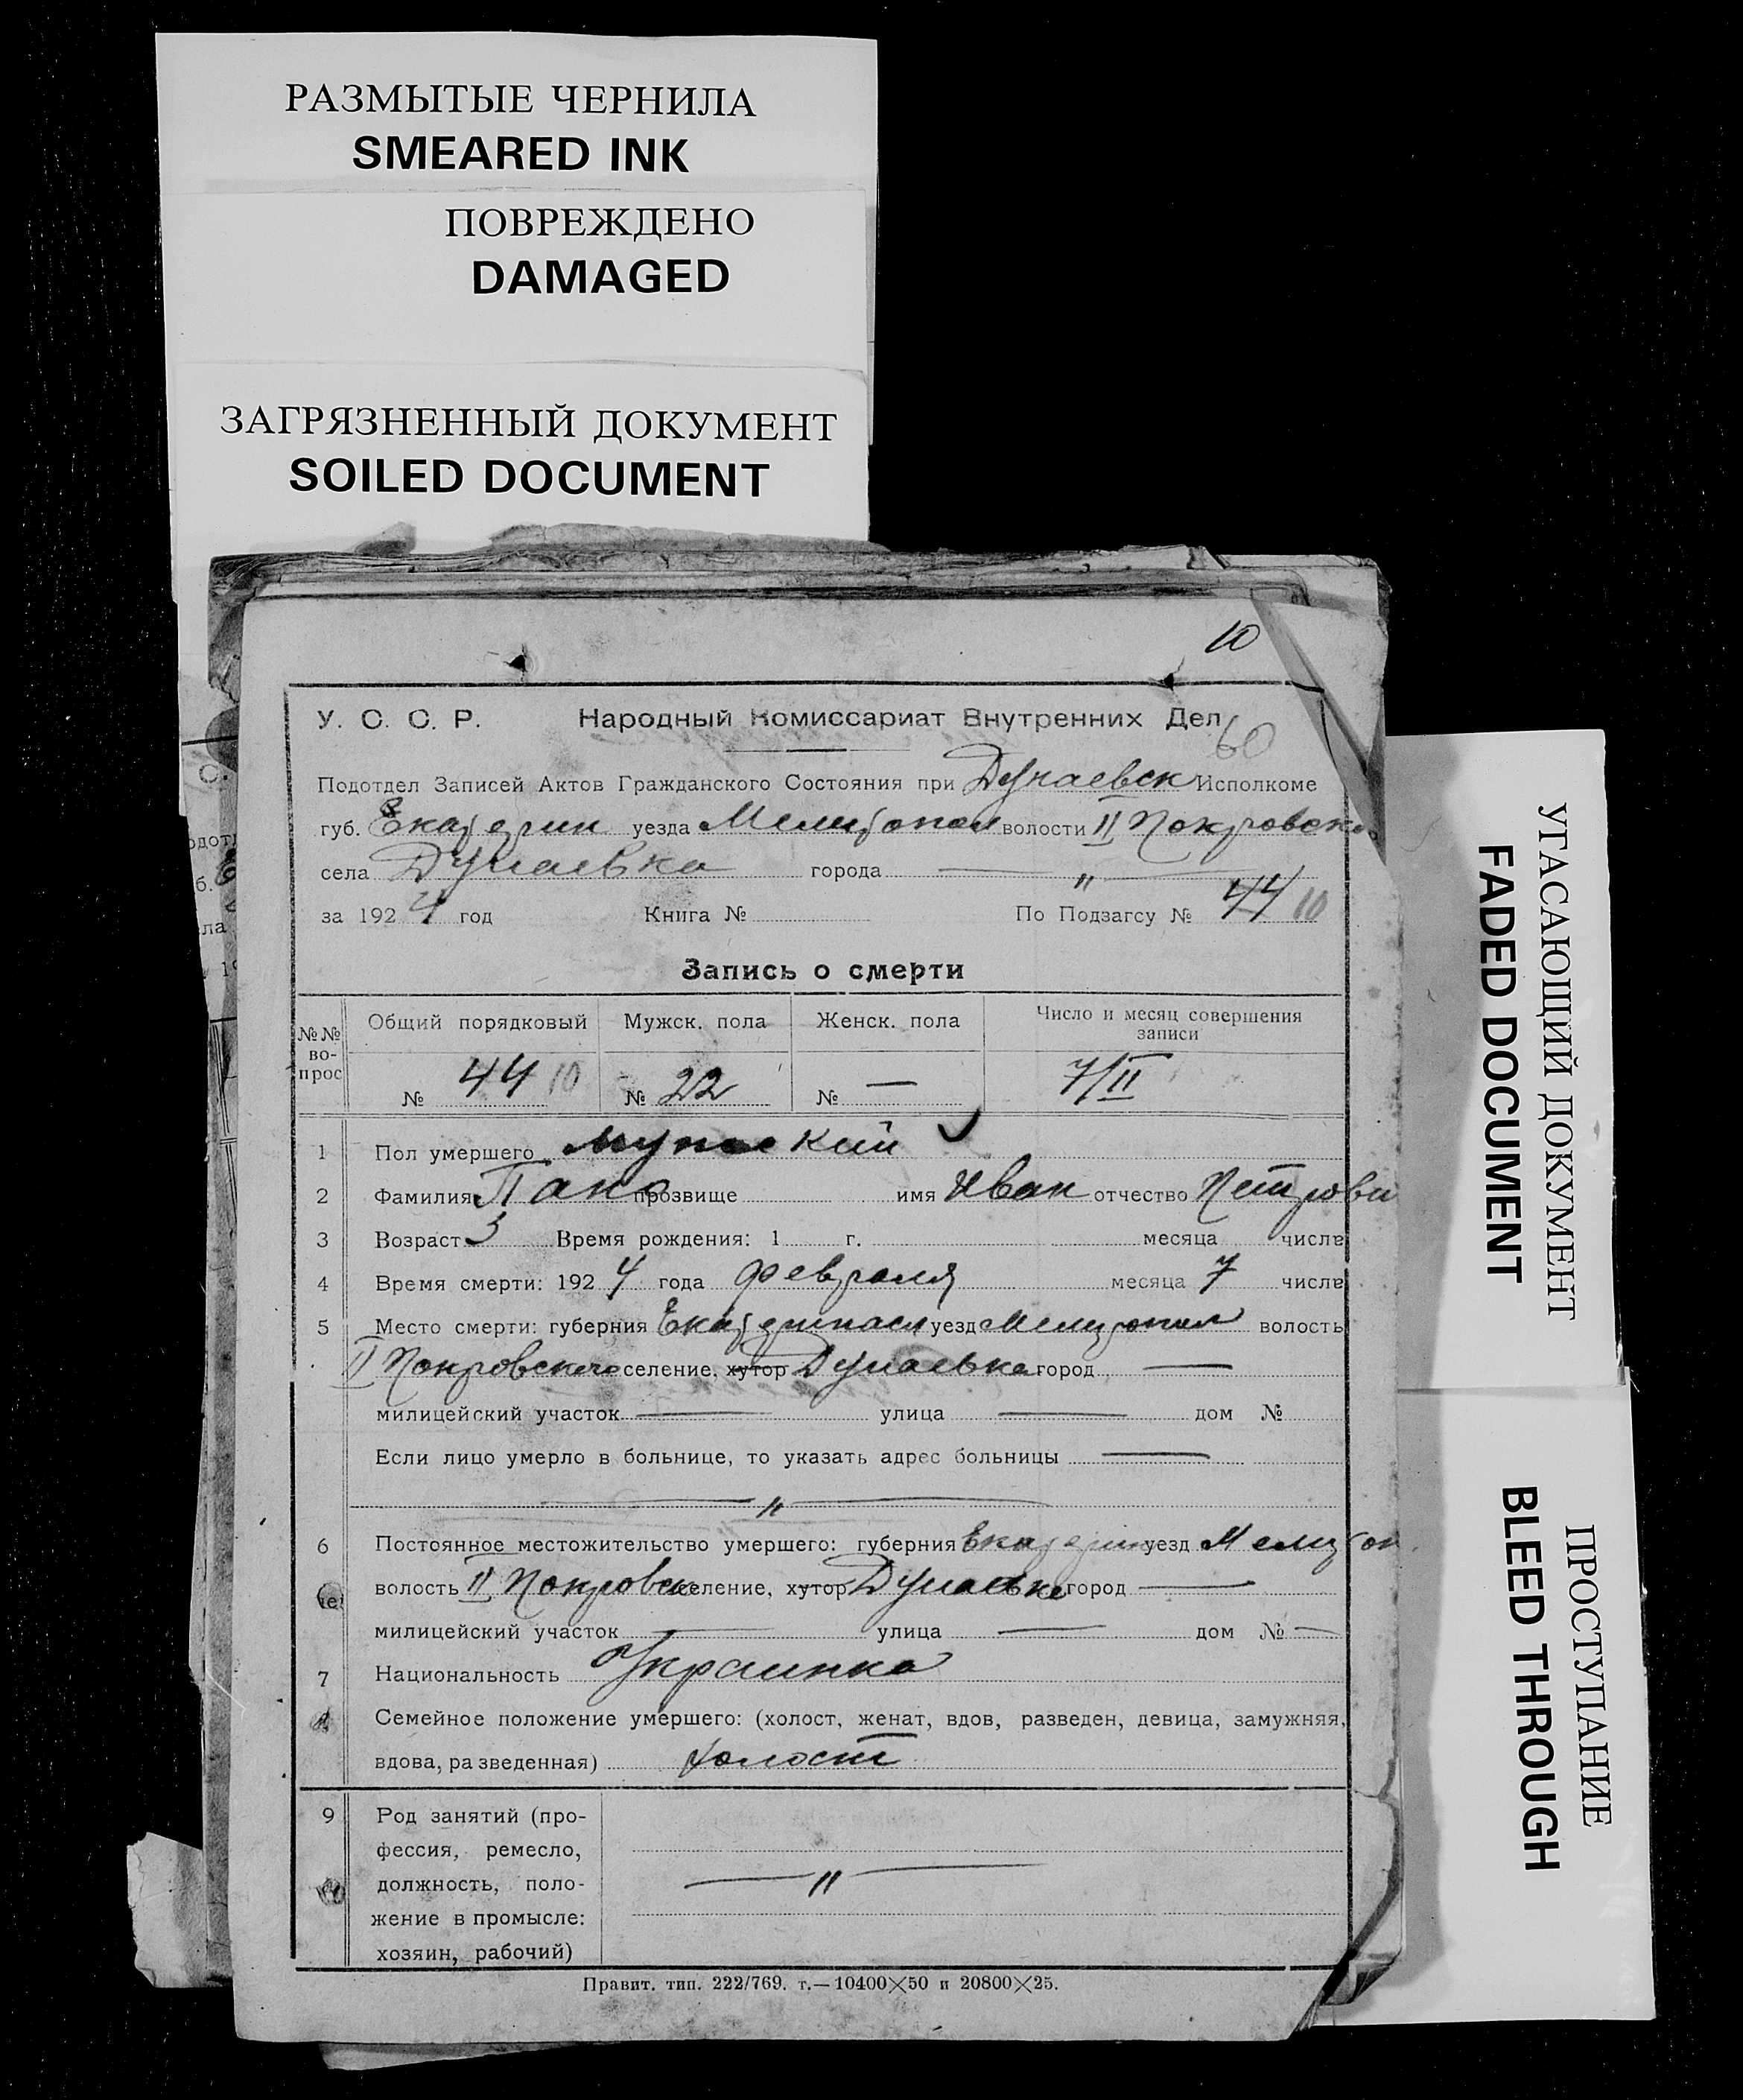 РАЗМЫТЫЕ ЧЕРНИЛА
SMEARED INK
ПОВРЕЖДЕНО
DAMAGED
ЗАГРЯЗНЕННЫЙ ДОКУМЕНТ
SOILED DOCUMENT
10
У. С. С. Р. Народный Комиссариат Внутренних Дел
60
Подотдел Записей Актов Гражданского Состояния при Дунаевск Исполкоме
губ. Екатерин уезда Мелитопол волости II Покровской
села Дунаевка города — " —
за 1924 год Книга № По Подзагсу № 44 10
Запись о смерти
№№ вопрос Общий порядковый Мужск. пола Женск. пола Число и месяц совершения записи
№ 44 10 № 22 № — 7/II
1 Пол умершего мужской
2 Фамилия Пано прозвище имя Иван отчество Петрови
3 Возраст 3 Время рождения: 1 г. месяца числа
4 Время смерти: 1924 года февраля месяца 7 числа
5 Место смерти: губерния Екатеринасл уезд Мелитопол волость
II Покровское селение, хутор Дунаевка город —
милицейский участок — улица — дом №
Если лицо умерло в больнице, то указать адрес больницы —
— " —
6 Постоянное местожительство умершего: губерния Екатерин уезд Мелитоп
волость II Покровск селение, хутор Дунаевка город —
милицейский участок — улица — дом № —
7 Национальность Украинка
Семейное положение умершего: (холост, женат, вдов, разведен, девица, замужняя,
вдова, разведенная) холост
9 Род занятий (про-
фессия, ремесло,
должность, поло- — " —
жение в промысле:
хозяин, рабочий)
Правит. тип. 222/769. т.—10400×50 и 20800×25.
УГАСАЮЩИЙ ДОКУМЕНТ
FADED DOCUMENT
ПРОСТУПАНИЕ
BLEED THROUGH